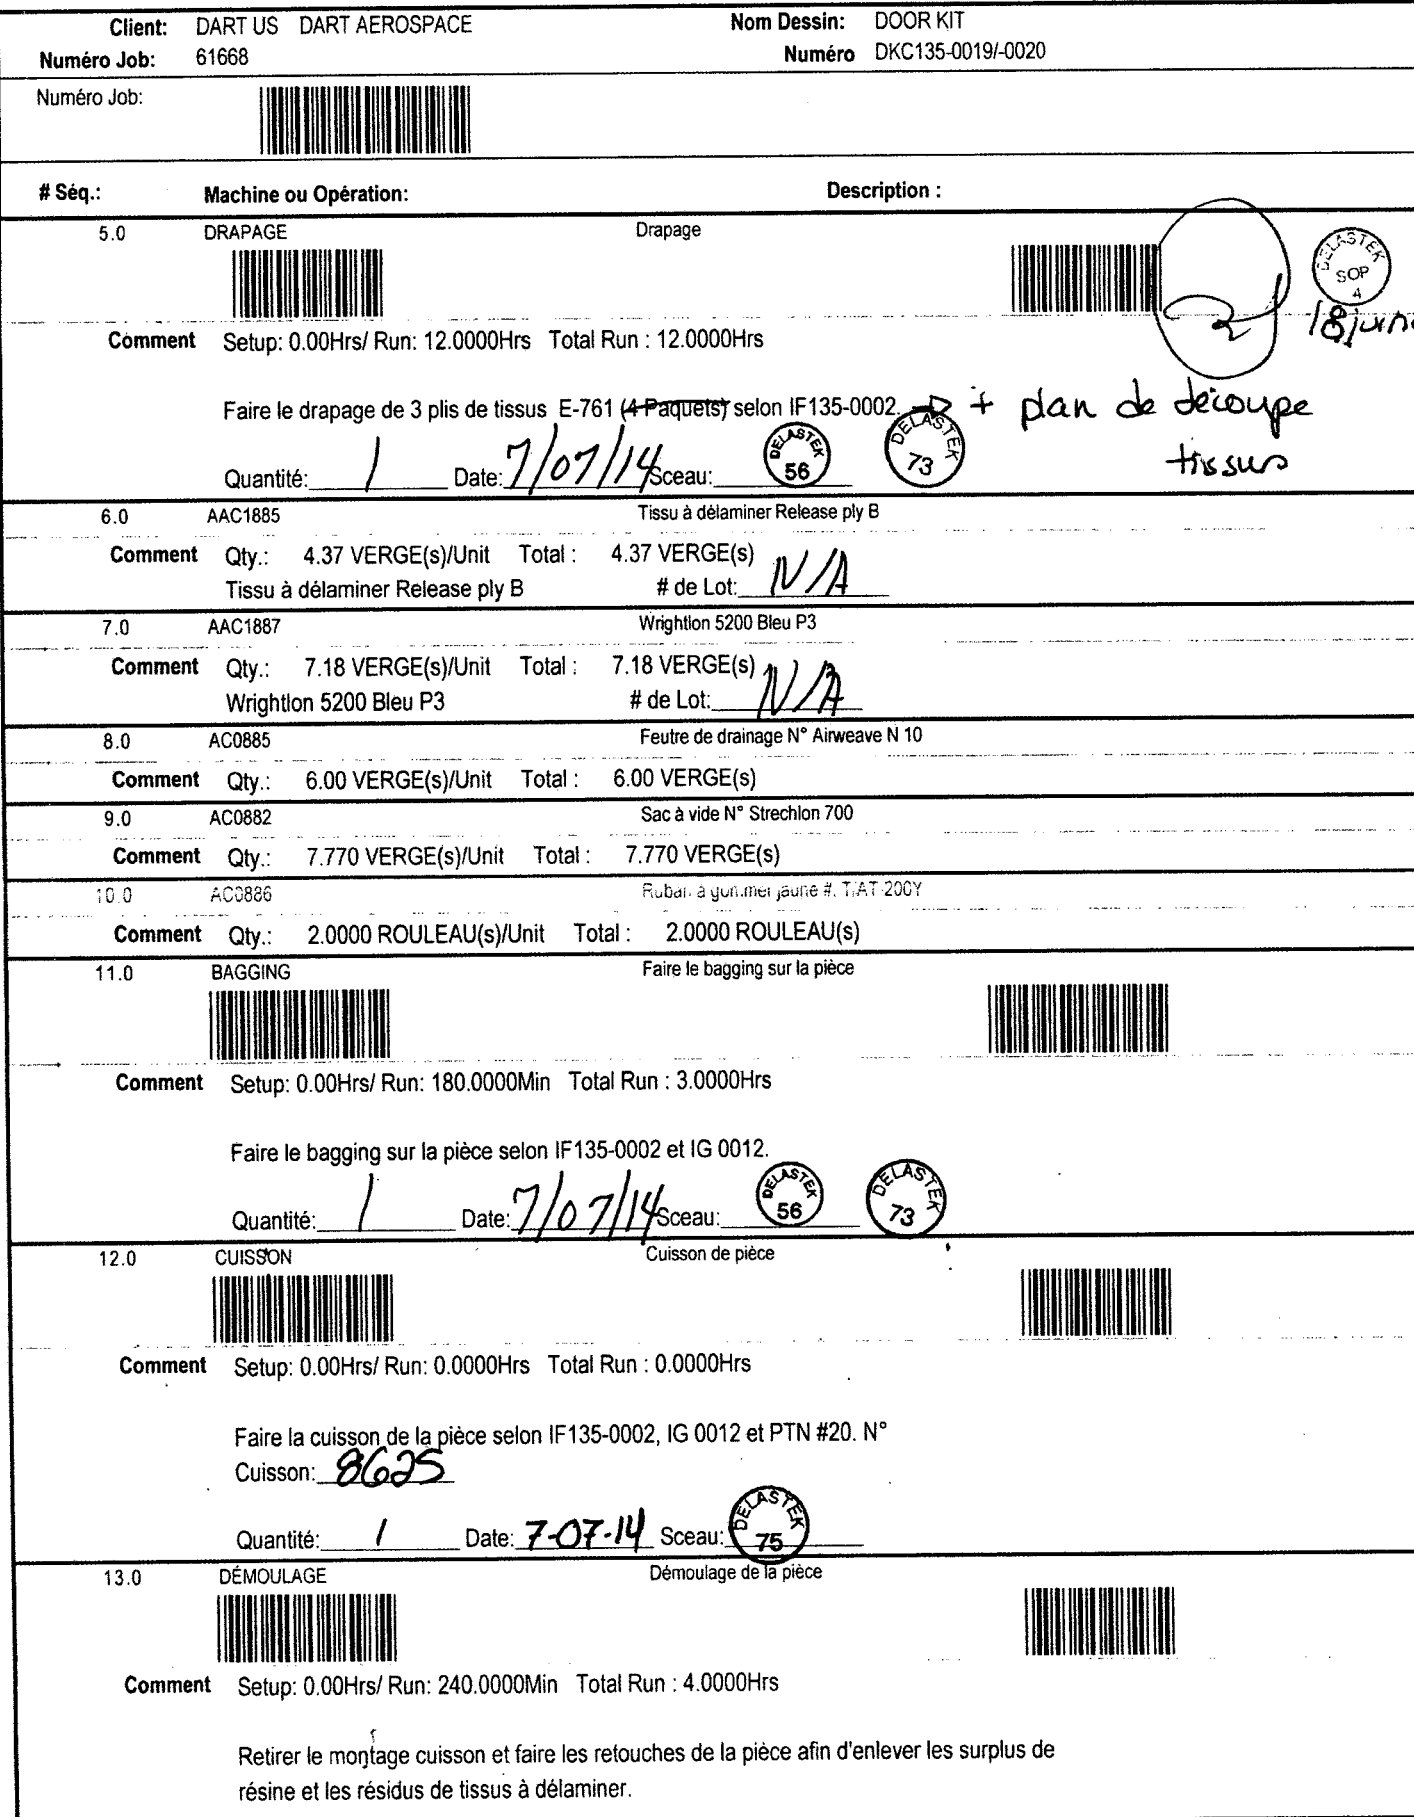 Client: DART US DART AEROSPACE Nom Dessin: DOOR KIT
Numéro Job: 61668 Numéro DKC135-0019/-0020
Numéro Job:
# Séq.: Machine ou Opération: Description :
5.0 DRAPAGE Drapage
DELASTEK SOP 4
Comment Setup: 0.00Hrs/ Run: 12.0000Hrs Total Run : 12.0000Hrs
Faire le drapage de 3 plis de tissus E-761 (4 Paquets) selon IF135-0002. + plan de découpe
tissus
Quantité: 1 Date: 7/07/14 Sceau: DELASTEK 56 DELASTEK 73
6.0 AAC1885 Tissu à délaminer Release ply B
Comment Qty.: 4.37 VERGE(s)/Unit Total : 4.37 VERGE(s)
Tissu à délaminer Release ply B # de Lot: N/A
7.0 AAC1887 Wrightlon 5200 Bleu P3
Comment Qty.: 7.18 VERGE(s)/Unit Total : 7.18 VERGE(s)
Wrightlon 5200 Bleu P3 # de Lot: N/A
8.0 AC0885 Feutre de drainage N° Airweave N 10
Comment Qty.: 6.00 VERGE(s)/Unit Total : 6.00 VERGE(s)
9.0 AC0882 Sac à vide N° Strechlon 700
Comment Qty.: 7.770 VERGE(s)/Unit Total : 7.770 VERGE(s)
10.0 AC0886 Ruban à gommer jaune #. T/AT-200Y
Comment Qty.: 2.0000 ROULEAU(s)/Unit Total : 2.0000 ROULEAU(s)
11.0 BAGGING Faire le bagging sur la pièce
Comment Setup: 0.00Hrs/ Run: 180.0000Min Total Run : 3.0000Hrs
Faire le bagging sur la pièce selon IF135-0002 et IG 0012.
Quantité: 1 Date: 7/07/14 Sceau: DELASTEK 56 DELASTEK 73
12.0 CUISSON Cuisson de pièce
Comment Setup: 0.00Hrs/ Run: 0.0000Hrs Total Run : 0.0000Hrs
Faire la cuisson de la pièce selon IF135-0002, IG 0012 et PTN #20. N°
Cuisson: 8625
Quantité: 1 Date: 7-07-14 Sceau: DELASTEK 75
13.0 DÉMOULAGE Démoulage de la pièce
Comment Setup: 0.00Hrs/ Run: 240.0000Min Total Run : 4.0000Hrs
Retirer le montage cuisson et faire les retouches de la pièce afin d'enlever les surplus de
résine et les résidus de tissus à délaminer.